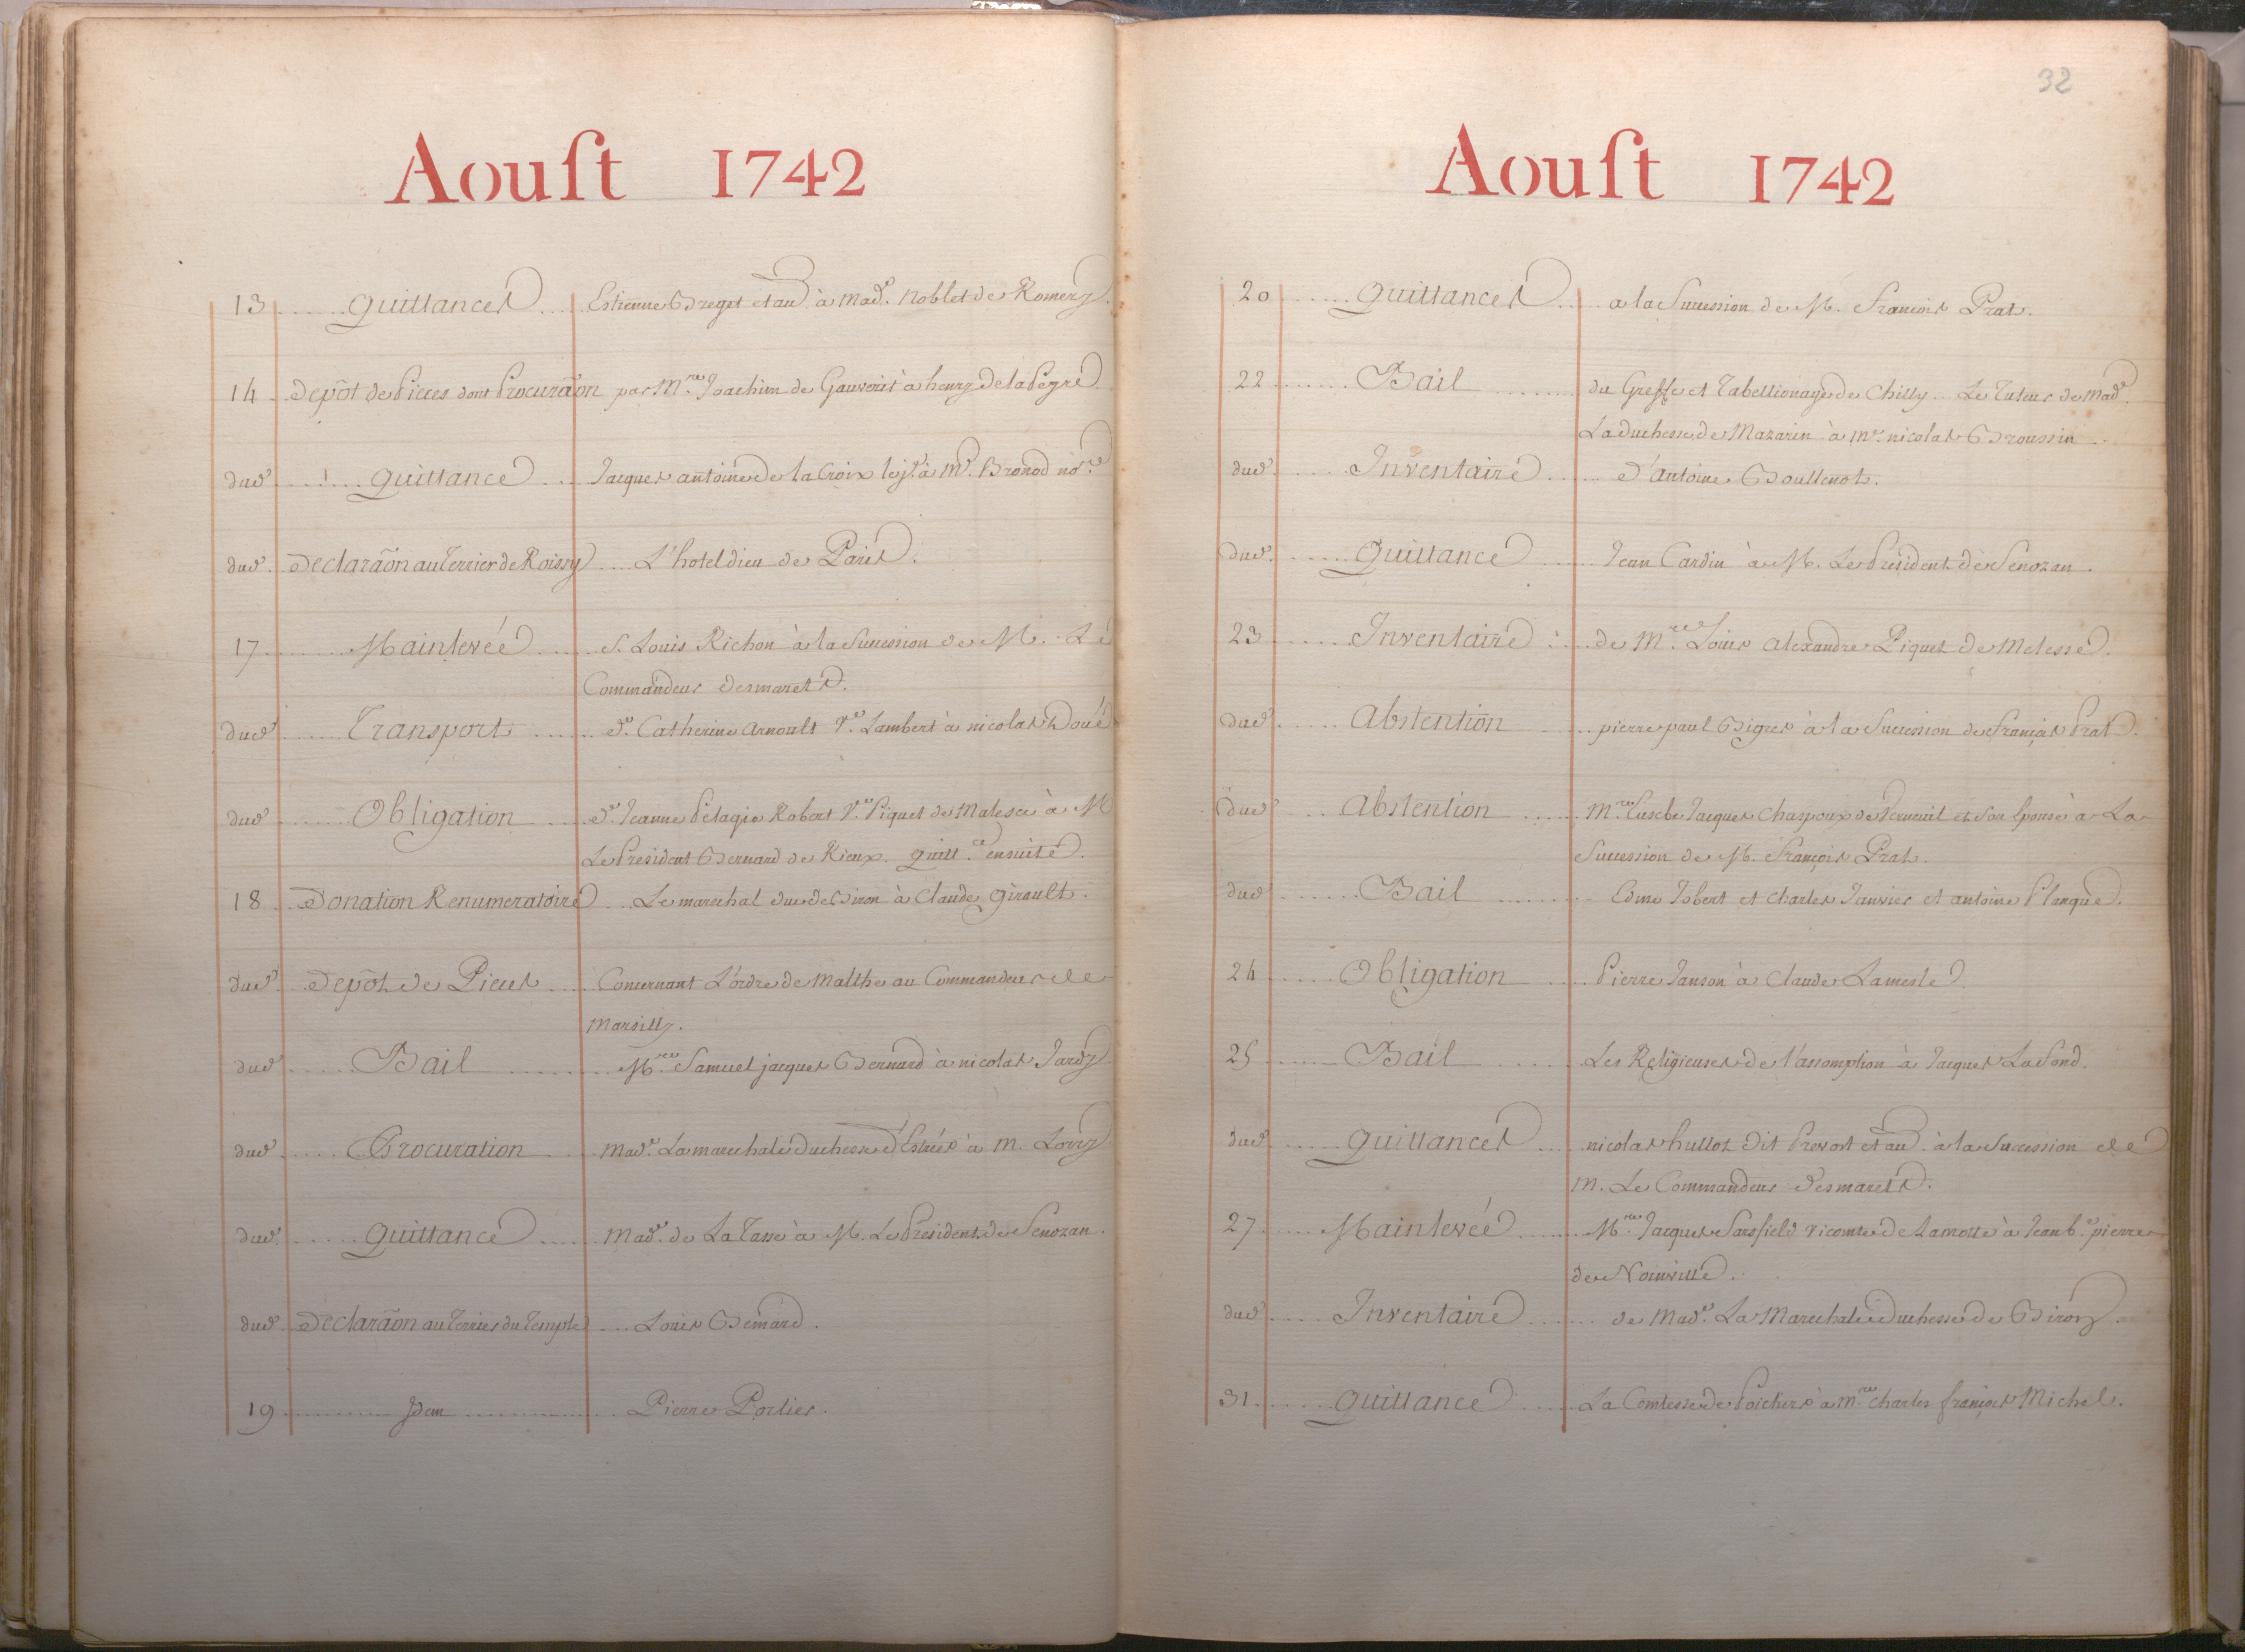 Aouſt 1742
13 Quittances Estienne Breget et au. à Mad.e Noblet de Romery.
14 Depôt de Pieces dont Procurãon par M.re Joachim de Gauverit à henry de la Pegre
dud. Quittance Jacques antoine de la Croix lej.e à M.e Bronod no.re
dud. Declarãon au Terrier de Roissy L'hotel dieu de Paris.
17 Mainlevée S. Louis Richon à la Succession de M. Le
Commandeur Desmarets.
dud. Transport d.e Catherine Arnoult V.e Lambert à nicolas Doué
dud. Obligation d.e Jeanne Pelagie Robert V.e Piquet de Malesce à M
Le President Bernard de Rieux. quitt.ce ensuite.
18 Donation Renumeratoire Le marechal duc de Biron à Claude Girault.
dud. Depôt de Pieces Concernant L'ordre de Malthe au Commandeur de
Marsilly.
dud. Bail M.re Samuel jacques Bernard à nicolas Jardy
dud. Procuration Mad.e La marechale duchesse d'Estrées à M. Lorry
dud. Quittance Mad.e de La Tasse à M. Le President de Senozan.
dud. Declarãon au Terrier du Temple Louis Bemard.
19 Idem Pierre Portier.
32
Aouſt 1742
20 Quittances a la Succession de M. François Prat.
22 Bail du Greffe et Tabellionage de Chilly Le Tuteur de Mad.e
La duchesse de Mazarin à M.e nicolas Broussin
dud. Inventaire d'Antoine Boullenot.
dud. Quittance Jean Cardin à M. Le President de Senozan.
23 Inventaire de M.re Louis Alexandre Piquet de Melesse.
dud. Abstention pierre paul Bigres à la Succession de François Prat.
dud. Abstention M.re Eusebe Jacques Chaspoux de Verneuil et Son Epouse à La
Succession de M. François Prat.
dud. Bail Edme Jobert et Charles Janvier et antoine Planque.
24 Obligation Pierre Janson à Claude Lamesle
25 Bail Les Religieuses de l'assomption à Jacques La Fond.
dud. Quittances nicolas hullot dit Prevost et au. à la Succession de
M. Le Commandeur Desmarets.
27 Mainlevée M.re Jacques Sarsfield vicomte de Lamotte à Jean b.te pierre
de Noinville.
dud. Inventaire de Mad.e La Marechale Duchesse de Biron.
31 Quittance La Comtesse de Poitiers à M.re Charles françois Michel.